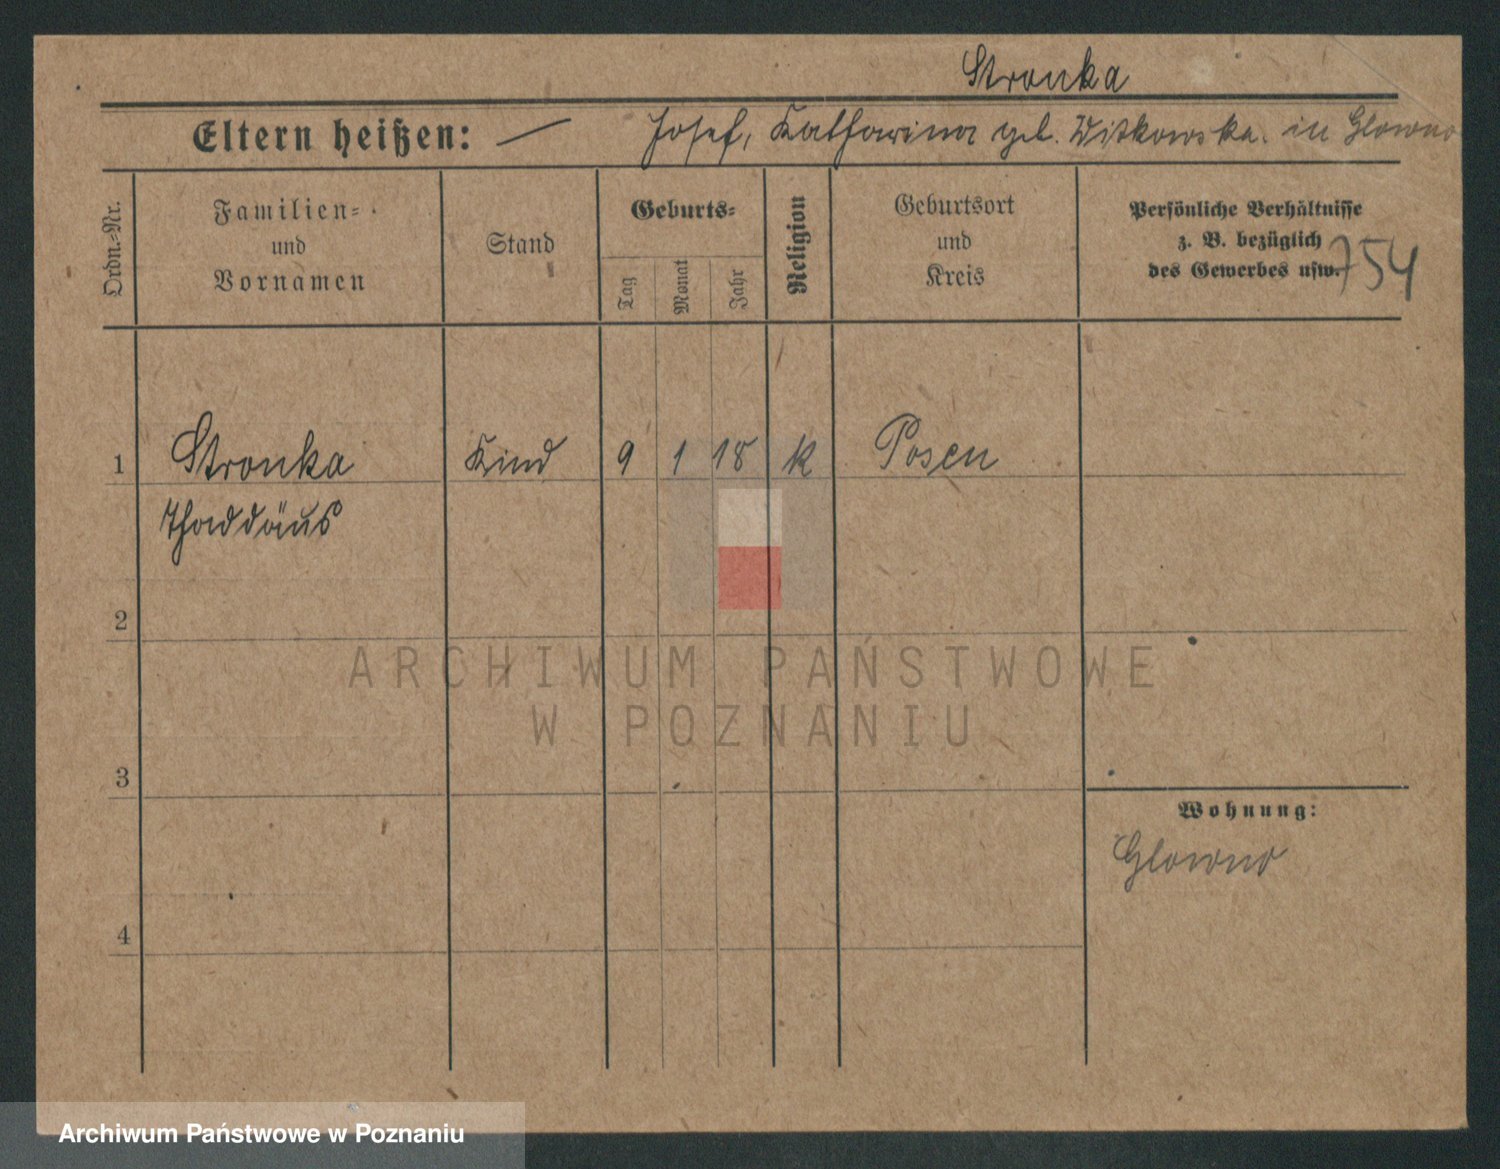 Stronka
Eltern heißen: — Josef, Katharina geb. Witkowska. in Glowno
Ordn.=Nr.
Familien=
und
Vornamen
Stand
Geburts=
Tag
Monat
Jahr
Religion
Geburtsort
und
Kreis
Persönliche Verhältnisse
z. B. bezüglich
des Gewerbes usw.
754
1 Stronka Kind 9 1 18 k Posen
Thaddäus
2
ARCHIWUM PAŃSTWOWE
W POZNANIU
3
Wohnung:
Glowno
4
Archiwum Państwowe w Poznaniu